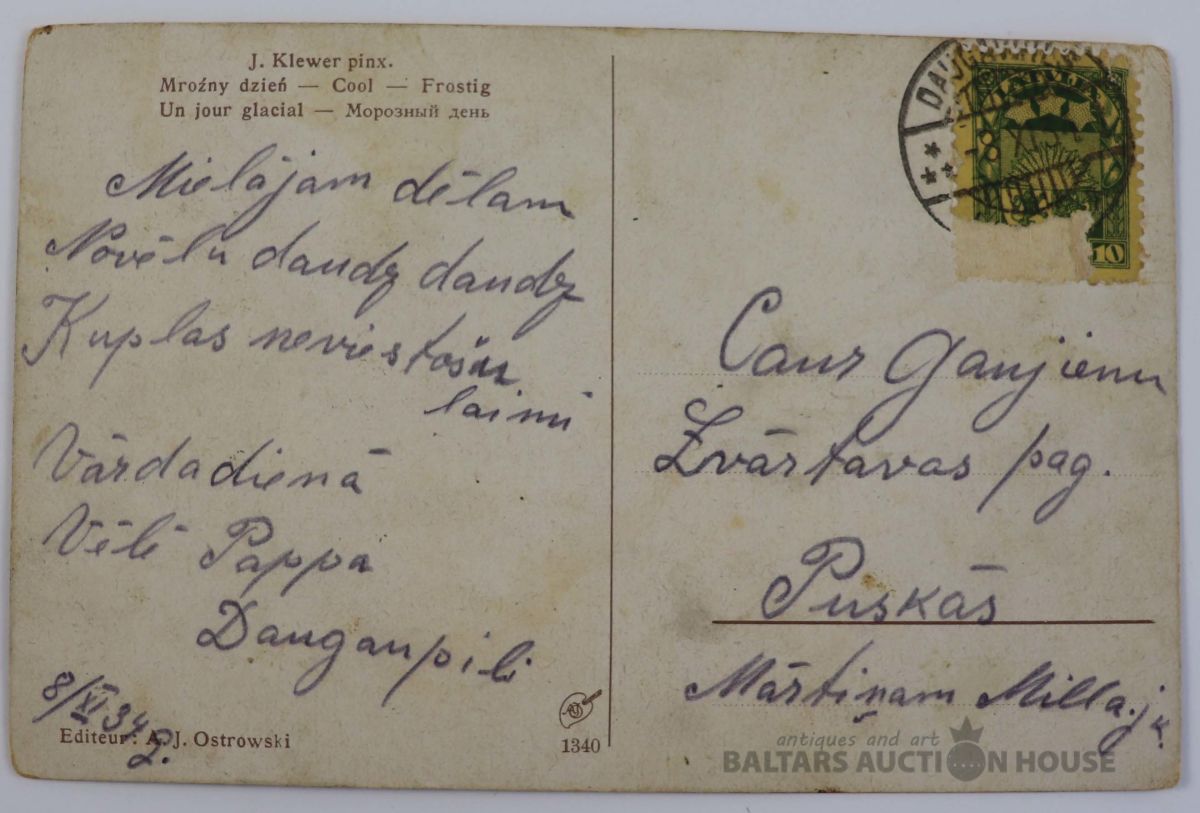 J. Klewer pinx.
Mroźny dzień — Cool — Frostig
Un jour glacial — Морозный день
Mielājam dēlam
Novēlu daudz daudz
Kuplas neviestošu
laimi
Vārdadienā
Vēlē Pappa
Daugaupili
8/XI 34
2.
Editeur: A. J. Ostrowski
1340
LATVIJA
10
Caur Gaujienu
Zvārtavas pag.
Puskās
Mārtiņam Milla.jk.
antiques and art
BALTARS AUCTION HOUSE